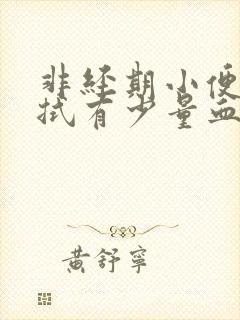 非经期小便
拭有少量血
黄舒宁